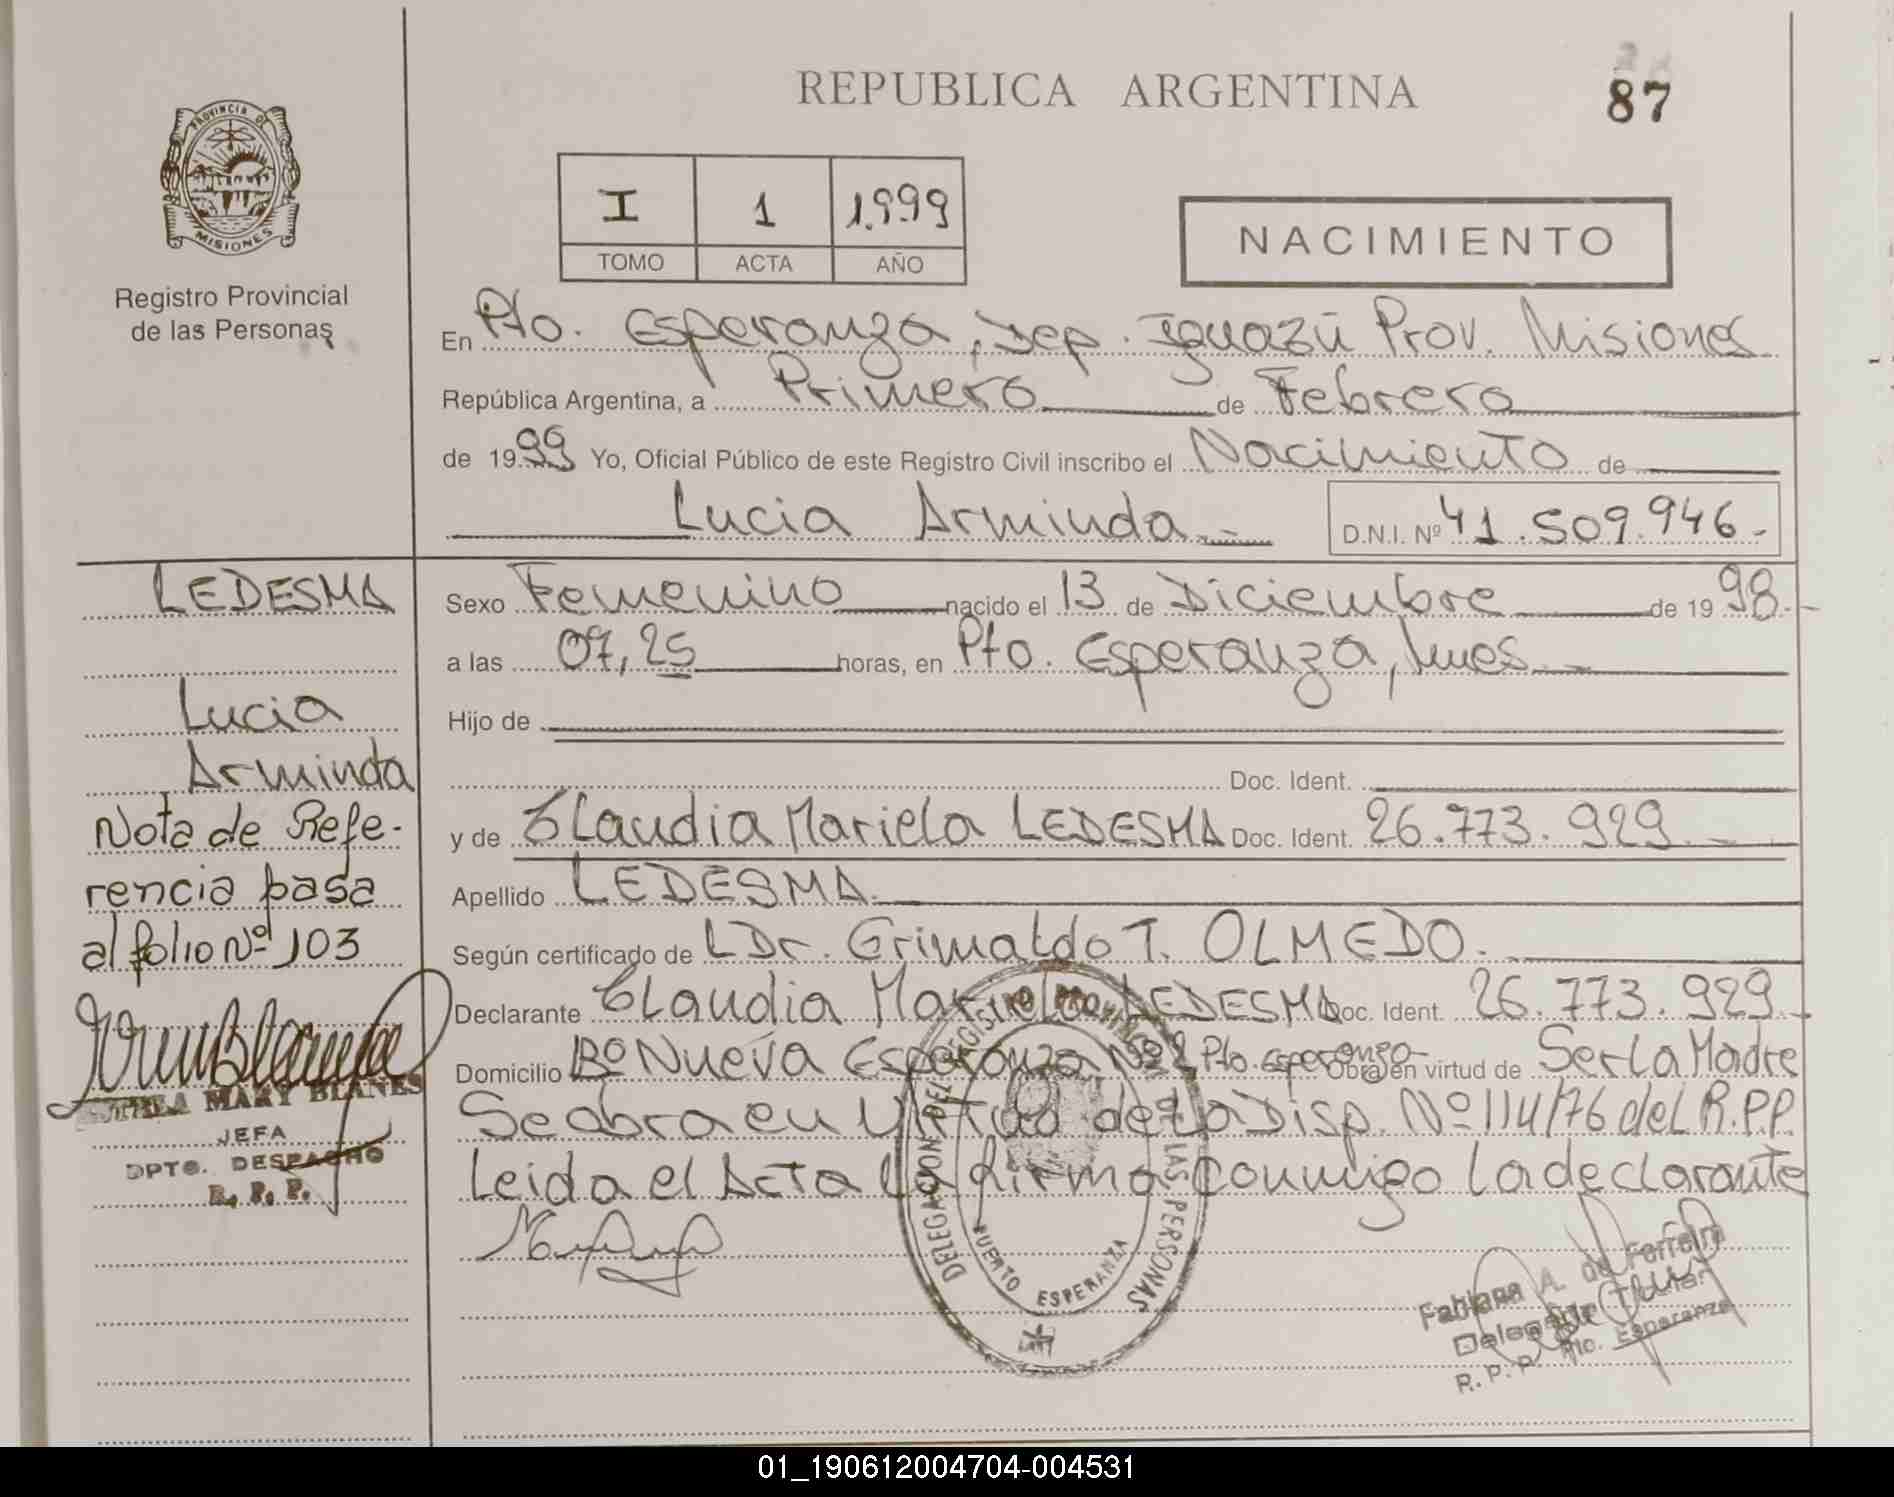 REPUBLICA ARGENTINA
87
PROVINCIA DE
MISIONES
Registro Provincial
de las Personas
I 1 1.999
TOMO ACTA AÑO
NACIMIENTO
En Pto. Esperanza, Dep. Iguazú Prov. Misiones
República Argentina, a Primero de Febrero
de 1999 Yo, Oficial Público de este Registro Civil inscribo el Nacimiento de
Lucia Arminda.- D.N.I. Nº 41.509.946.-
LEDESMA
Lucia
Arminda
Nota de Refe-
rencia pasa
al folio Nº 103
MARY BLANES
JEFA
DPTO. DESPACHO
R. P. P.
Sexo Femenino nacido el 13 de Diciembre de 1998.-
a las 07,25 horas, en Pto. Esperanza, Mnes.-
Hijo de
Doc. Ident.
y de Claudia Mariela LEDESMA Doc. Ident. 26.773.929.-
Apellido LEDESMA.
Según certificado de LDr. Grimaldo T. OLMEDO.
Declarante Claudia Mariela LEDESMA Doc. Ident. 26.773.929.-
Domicilio Bº Nueva Esperanza Nº 2 Pto. Esperanza- Obra en virtud de Ser La Madre
Se obra en Virtud de La Disp. Nº 114/76 del R.P.P.
Leida el Acta la firma conmigo la declarante
DELEGACION DEL REGISTRO PROVINCIAL DE LAS PERSONAS
PUERTO ESPERANZA
Fabiana A. de Ferreira
Delegada Titular
R. P. P. Pto. Esperanza
01_190612004704-004531